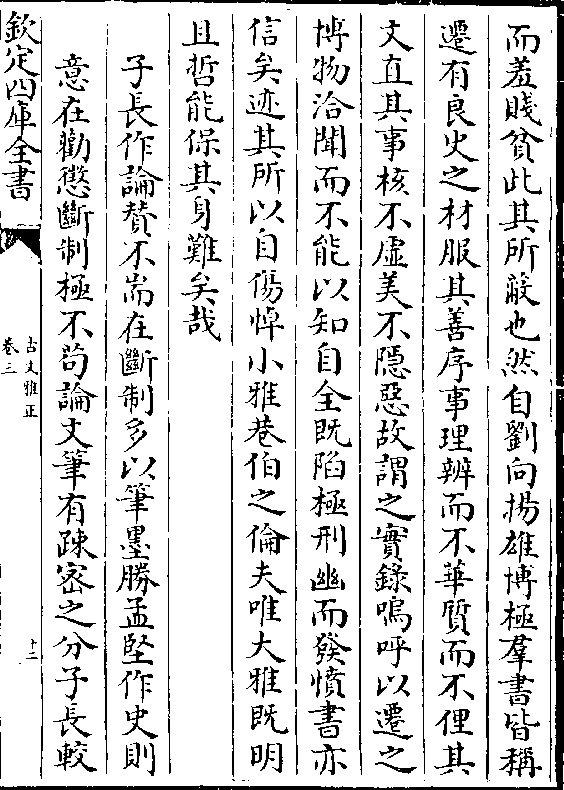 而羞賤貧此其所蔽也然自劉向揚雄博極羣書皆稱
遷有良史之材服其善序事理辨而不華質而不俚其
文直其事核不虛美不隱惡故謂之實錄嗚呼以遷之
博物洽聞而不能以知自全既陷極刑幽而發憤書亦
信矣迹其所以自傷悼小雅巷伯之倫夫唯大雅既明
且哲能保其身難矣哉
子長作論贊不耑在斷制多以筆墨勝孟堅作史則
意在勸懲斷制極不茍論文筆有疎密之分子長較
欽定四庫全書
古文雅正
卷三
十二